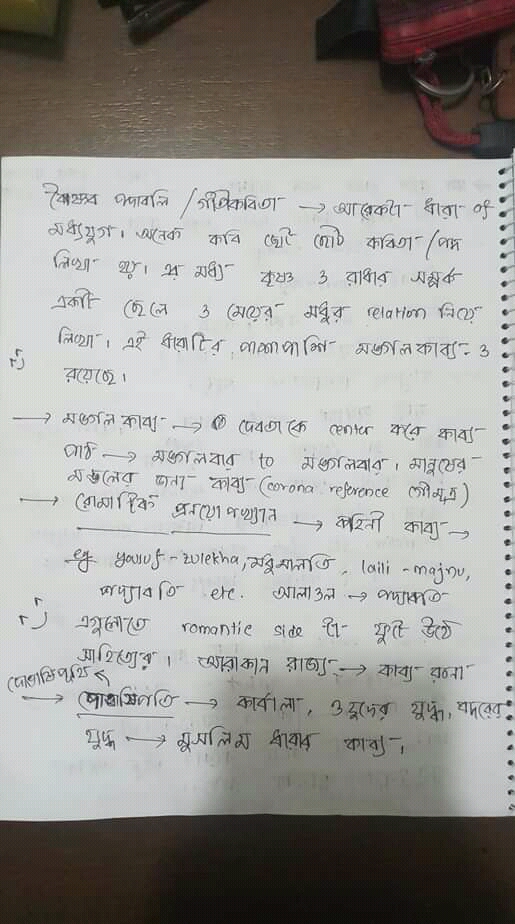 বৈষ্ণব পদাবলি / গীতিকবিতা → আরেকটা ধারা of
মধ্যযুগ। অনেক কবি ছোট ছোট কবিতা / পদ
লিখা হয়। এর মধ্য কৃষ্ণ ও রাধার সম্পর্ক
একটা ছেলে ও মেয়ের মধুর relation নিয়ে
লিখা। এই ধারাটির পাশাপাশি মঙ্গলকাব্য ও
রয়েছে।
→ মঙ্গল কাব্য → দেবতা কে center করে কাব্য
পাঠ → মঙ্গলবার to মঙ্গলবার। মানুষের
মঙ্গলের জন্য কাব্য (corona reference গোমূত্র)
→ রোমান্টিক প্রনয়োপখ্যান → কাহিনী কাব্য →
eg yousuf - zulekha, মধুমালতি, laili - majnu,
পদ্মাবতি etc. আলাওল → পদ্মাবতি
এগুলোতে romantic side টা ফুটে উঠে
সাহিত্যের। আরাকান রাজ্য → কাব্য রচনা
→ কারবালা, ওহুদের যুদ্ধ, বদরের
যুদ্ধ → মুসলিম ধারার কাব্য।